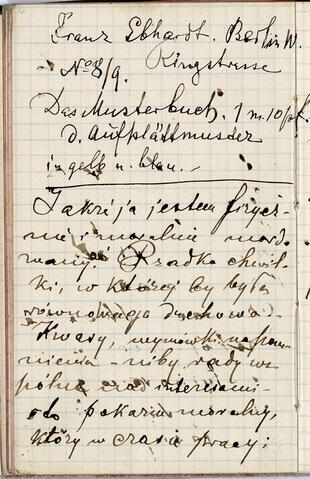 Franz Ebhardt. Berlin W.
No 8/9. Ringstrasse
Das Musterbuch. 1 m. 10 pf.
d. Aufplättmuster
in gelb u. blau. -
Jakże ja jestem fizycz-
nie i moralnie mordo-
wany! Rzadko chwil-
ki, w której by była
równowaga duchowa -
Kwasy, wymówki napom-
nienia - niby rady we
pólne nad interesami -
do pokarmu moralny,
który w czasie pracy;